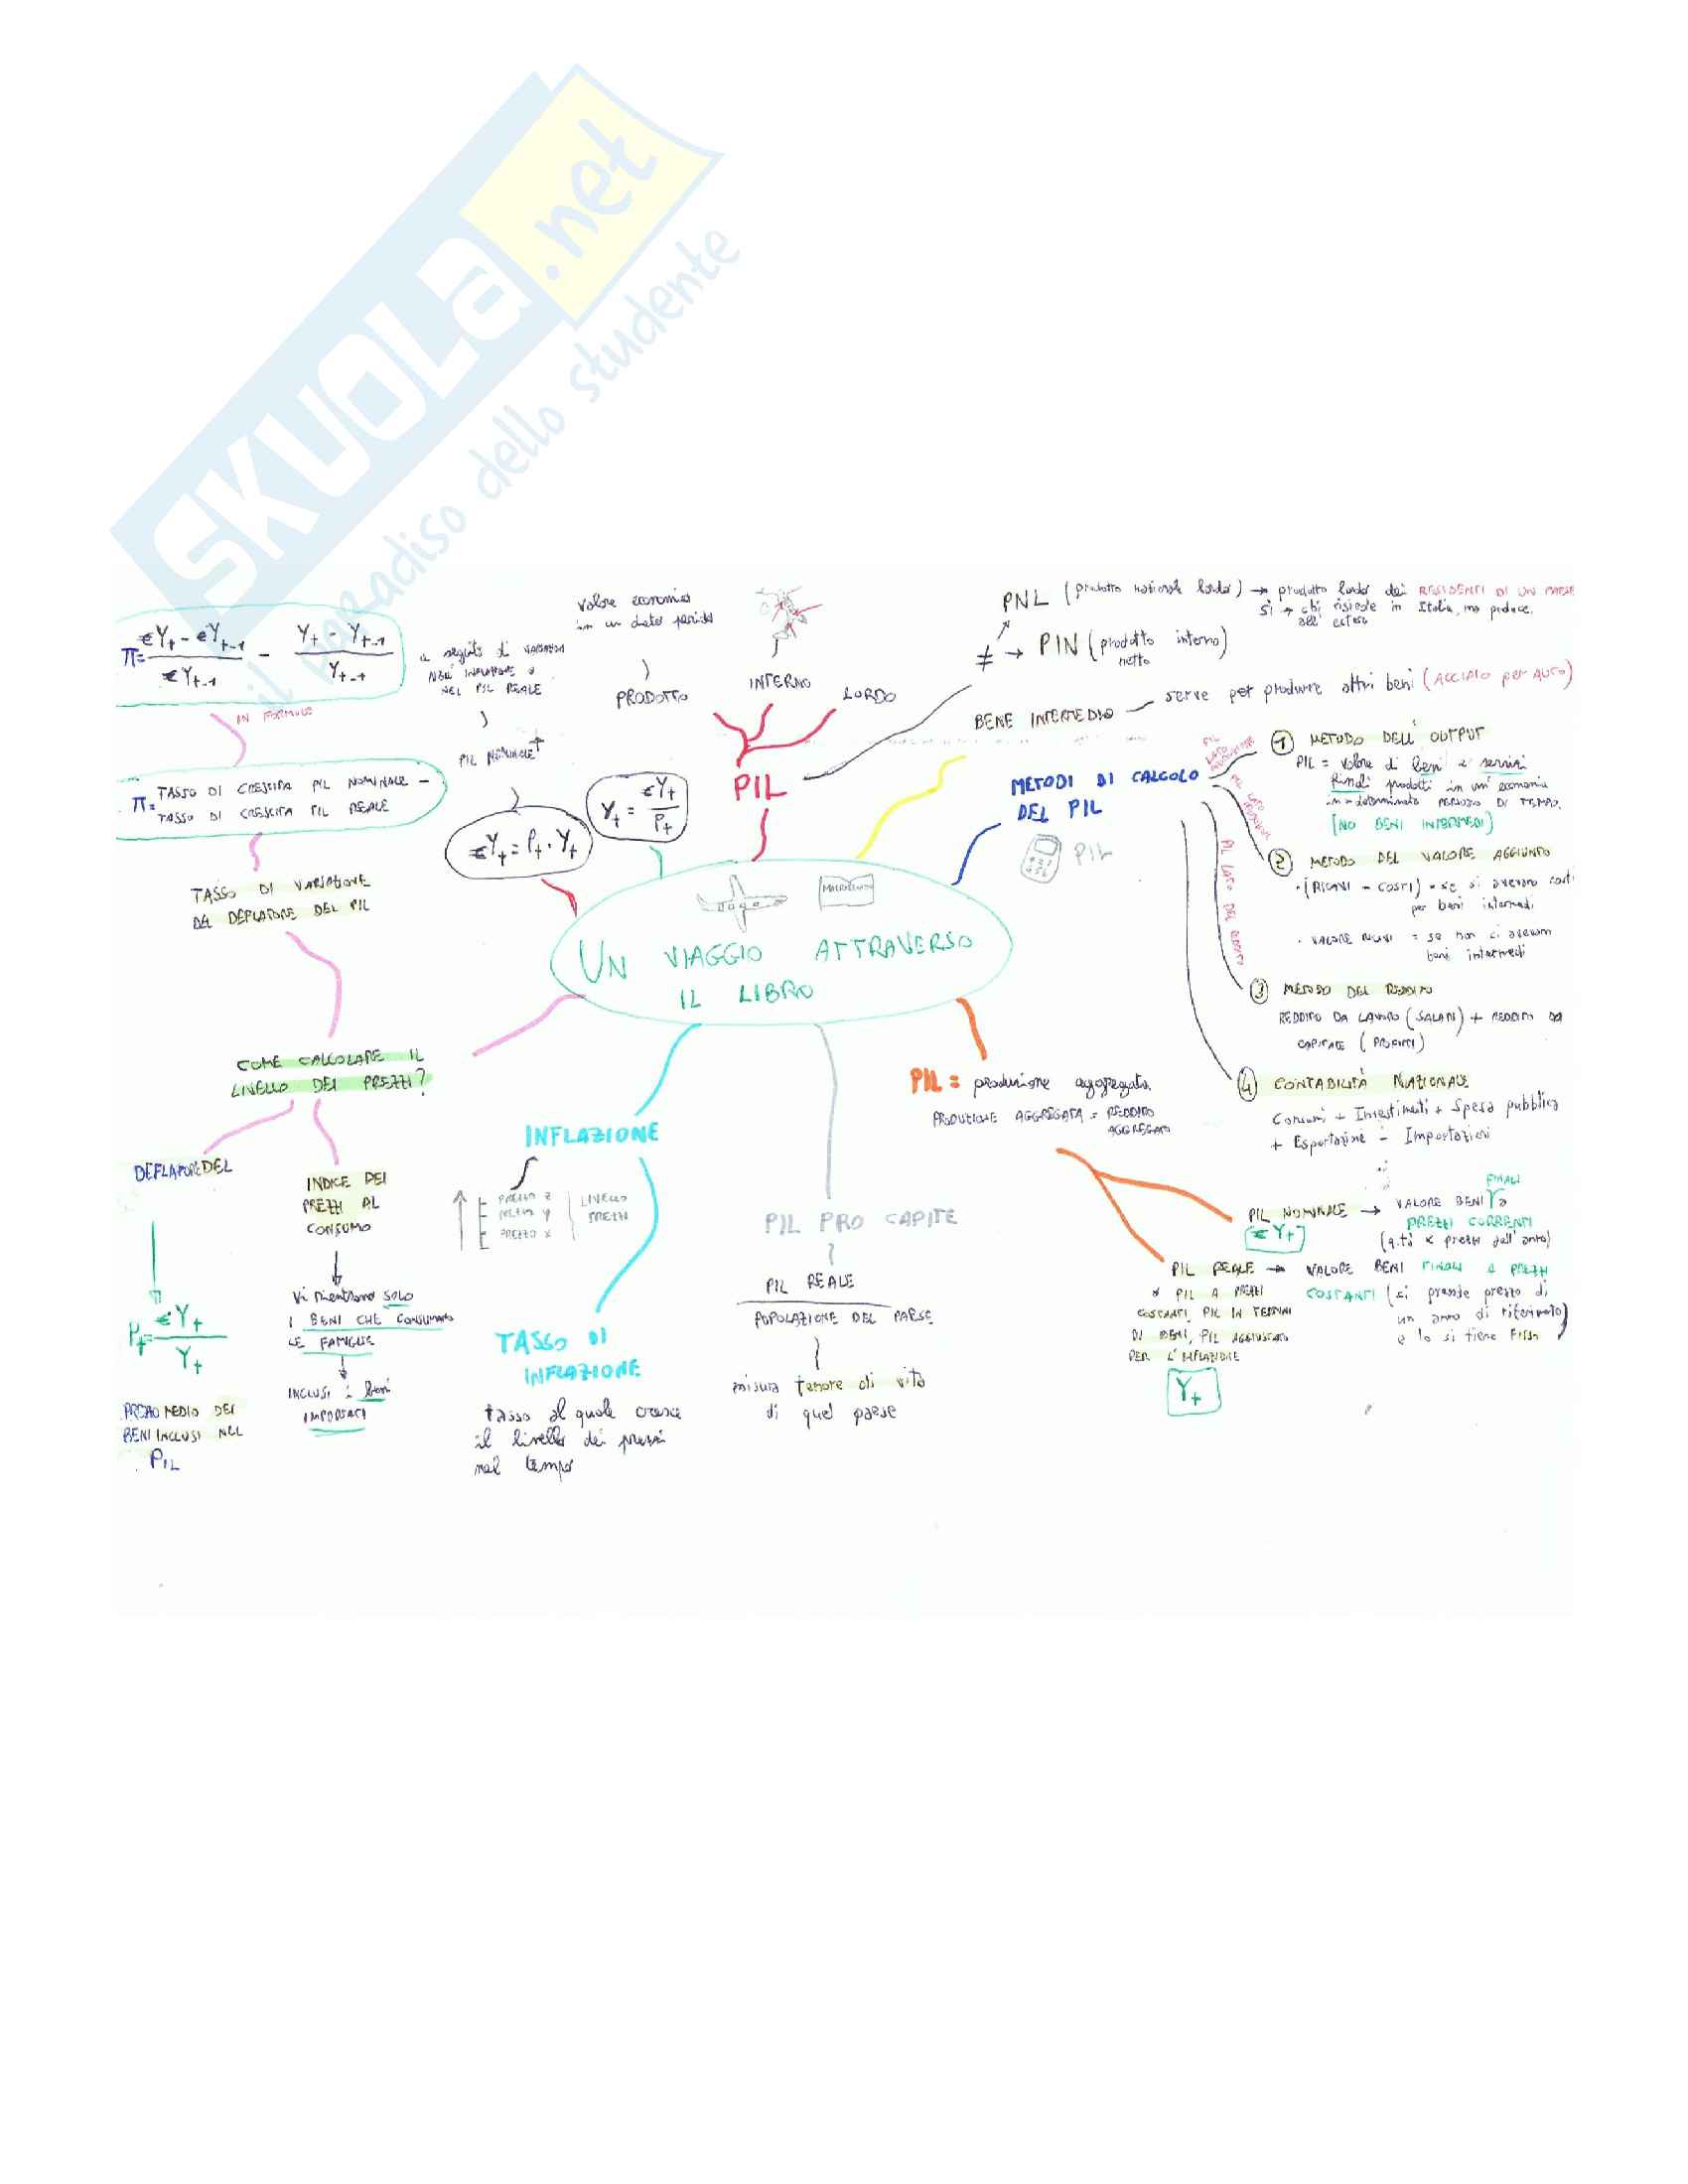 SKUOLa.net
il paradiso dello studente
UN VIAGGIO ATTRAVERSO
IL LIBRO
MACROECONOMIA
PIL
PRODOTTO
valore economico
in un dato periodo
INTERNO
LORDO
≠
PNL (prodotto nazionale lordo) → prodotto lordo dei RESIDENTI DI UN PAESE
si → chi risiede in Italia, ma produce
all'estero
→ PIN (prodotto interno)
netto
BENE INTERMEDIO — serve per produrre altri beni (ACCIAIO per AUTO)
METODI DI CALCOLO
DEL PIL
PIL
PIL LATO PRODUZIONE
PIL LATO PRODUZIONE
PIL LATO DEL REDDITO
1 METODO DELL'OUTPUT
PIL = valore di beni e servizi
finali prodotti in un'economia
in determinato PERIODO DI TEMPO.
[NO BENI INTERMEDI]
2 METODO DEL VALORE AGGIUNTO
· (RICAVI - COSTI) = se si avevano costi
per beni intermedi
· VALORE RICAVI = se non ci avevano
beni intermedi
3 METODO DEL REDDITO
REDDITO DA LAVORO (SALARI) + REDDITO DA
CAPITALE (PROFITTI)
4 CONTABILITÀ NAZIONALE
Consumi + Investimenti + Spesa pubblica
+ Esportazioni - Importazioni
PIL = produzione aggregata.
PRODUZIONE AGGREGATA = REDDITO
AGGREGATO
PIL NOMINALE → VALORE BENI FINALI a
PREZZI CORRENTI
(q.tà x prezzi dell'anno)
€Yt
PIL REALE → VALORE BENI FINALI A PREZZI
COSTANTI (si prende prezzo di
un anno di riferimento
e lo si tiene fisso)
o PIL A PREZZI
COSTANTI, PIL IN TERMINI
DI BENI, PIL AGGIUSTATO
PER L'INFLAZIONE
Yt
PIL PRO CAPITE
PIL REALE
POPOLAZIONE DEL PAESE
misura tenore di vita
di quel paese
INFLAZIONE
PREZZO Z
PREZZO Y
PREZZO X
LIVELLO
PREZZI
TASSO DI
INFLAZIONE
tasso al quale cresce
il livello dei prezzi
nel tempo
COME CALCOLARE IL
LIVELLO DEI PREZZI?
DEFLATORE DEL
Pt = €Yt / Yt
PREZZO MEDIO DEI
BENI INCLUSI NEL
PIL
INDICE DEI
PREZZI AL
CONSUMO
Vi rientrano SOLO
I BENI CHE CONSUMANO
LE FAMIGLIE
INCLUSI i beni
IMPORTATI
TASSO DI VARIAZIONE
DEL DEFLATORE DEL PIL
π = TASSO DI CRESCITA PIL NOMINALE -
TASSO DI CRESCITA PIL REALE
IN FORMULE
π = (€Yt - €Yt-1) / €Yt-1 - (Yt - Yt-1) / Yt-1
a seguito di VARIAZIONI
NELL'INFLAZIONE o
NEL PIL REALE
PIL NOMINALE ↑
€Yt = Pt · Yt
Yt = €Yt / Pt